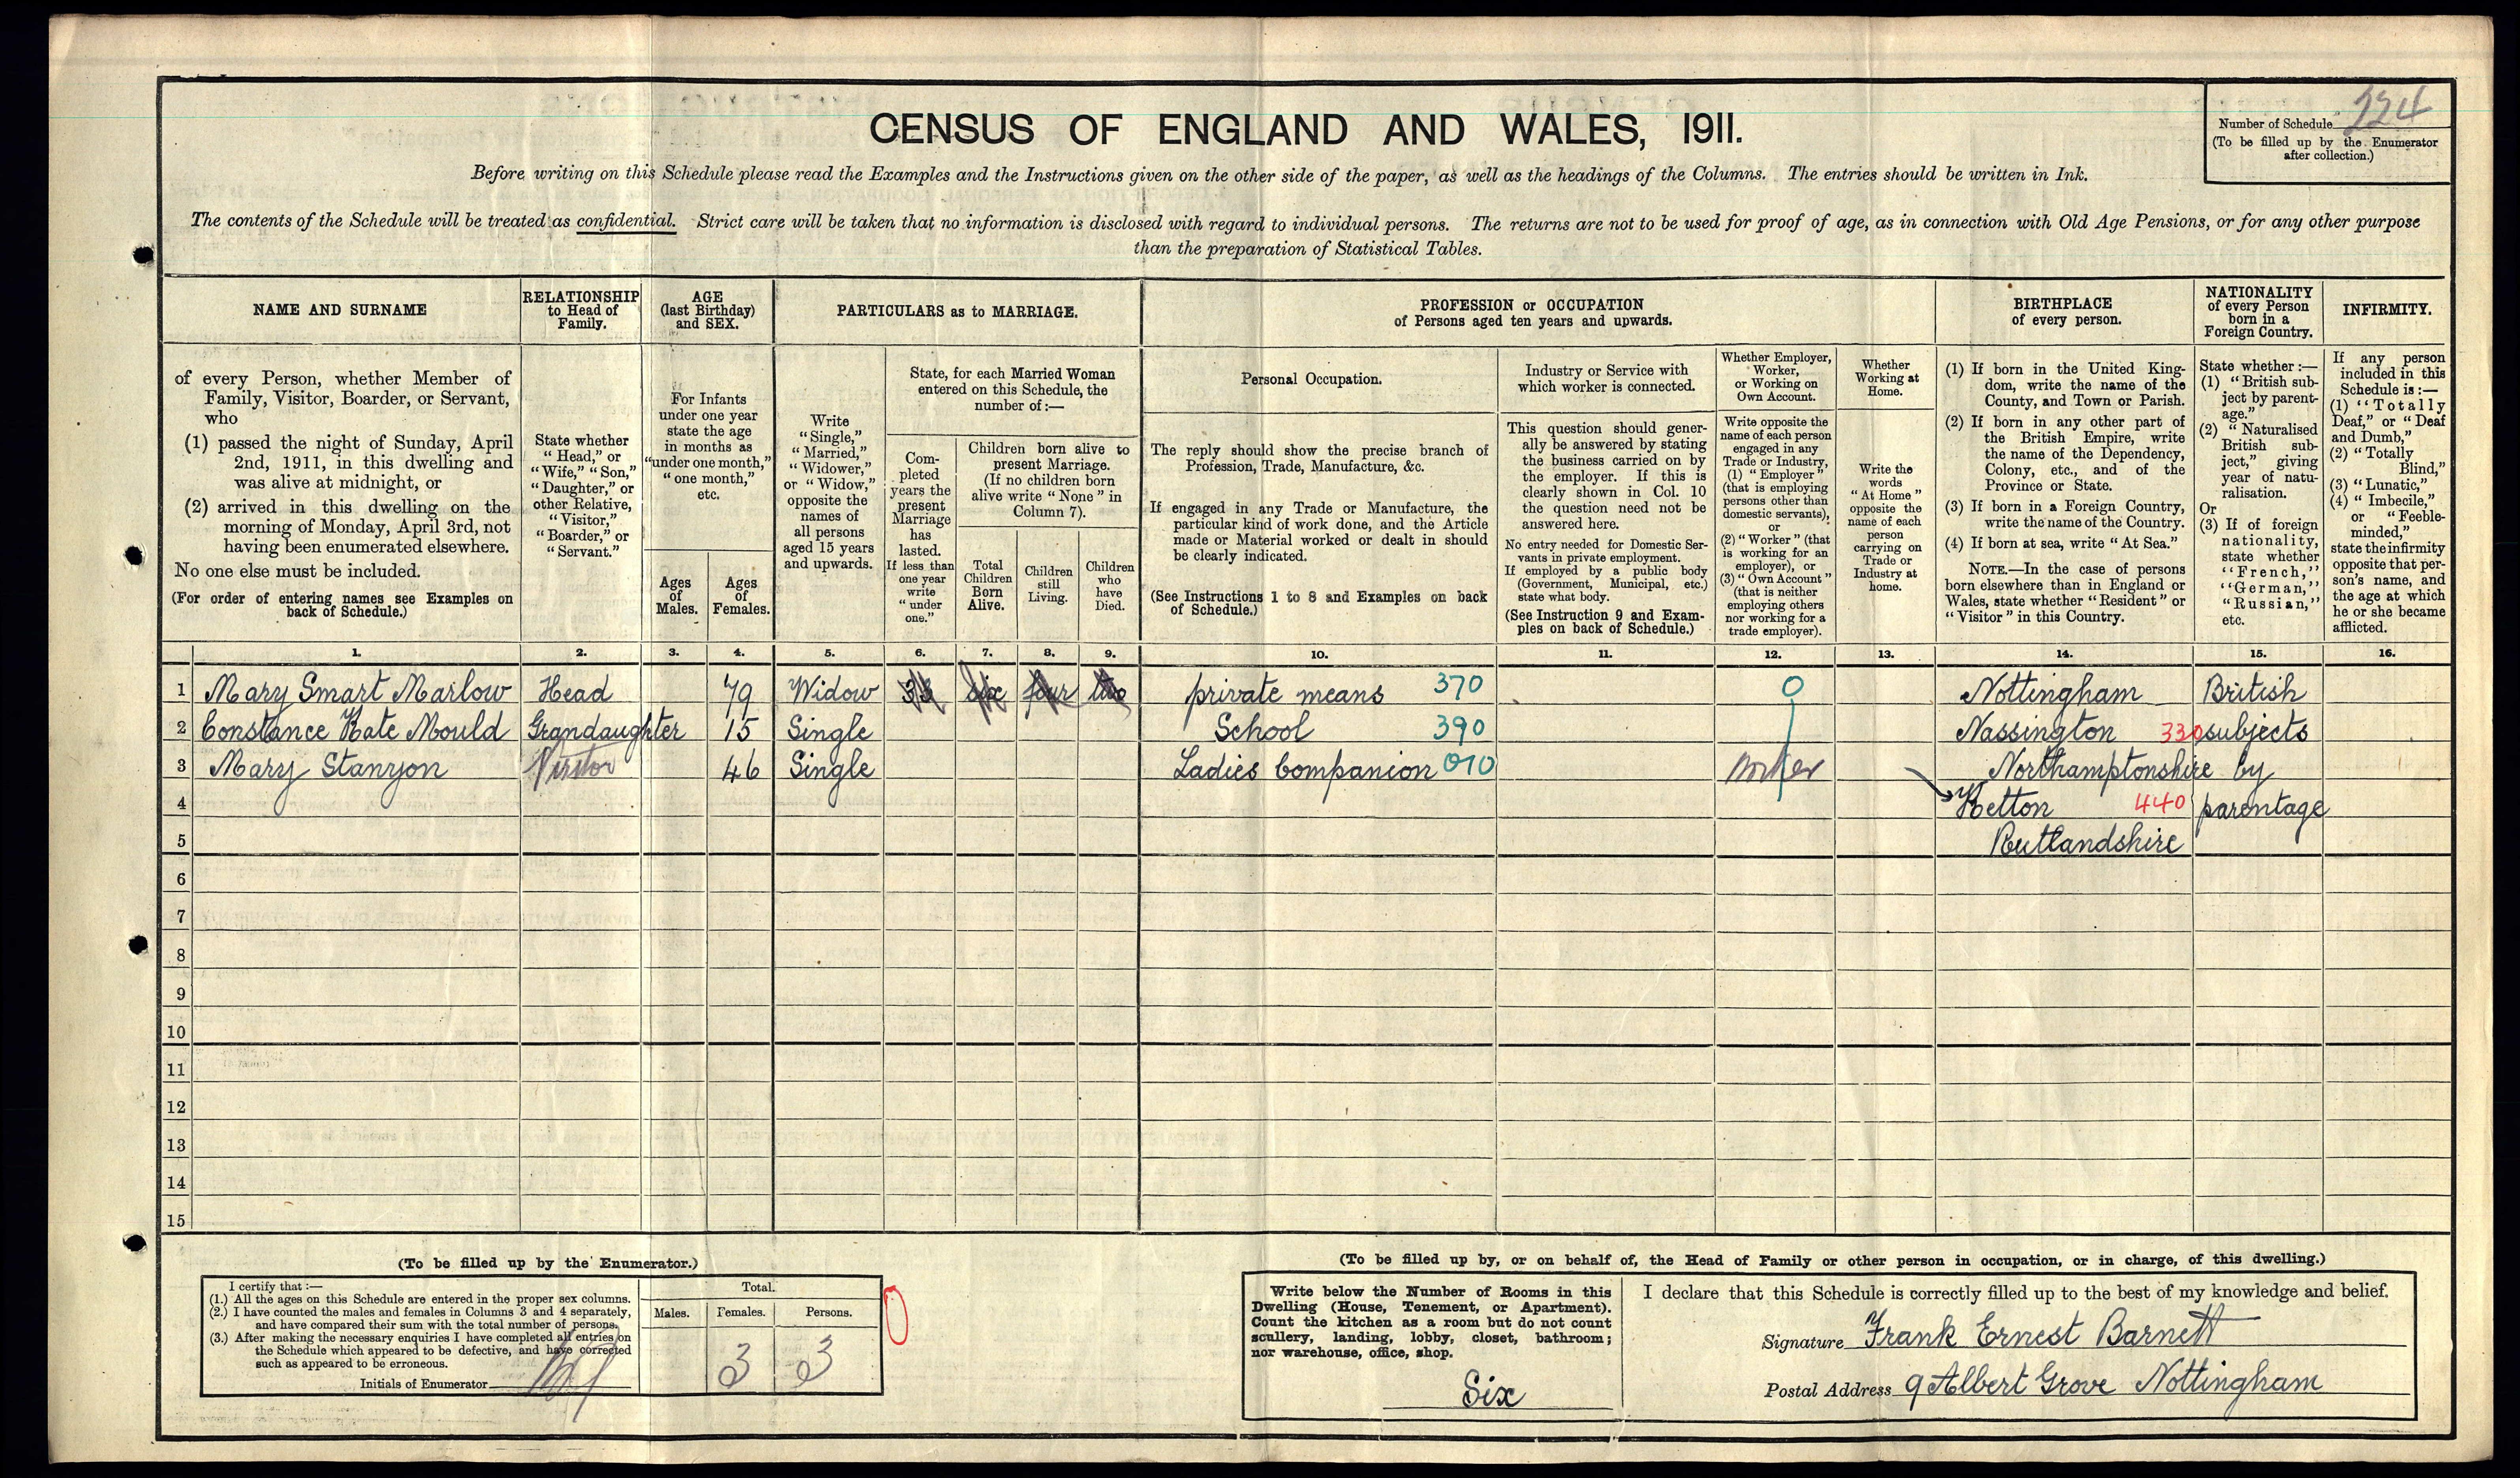 Number of Schedule 224
(To be filled up by the Enumerator
after collection.)
CENSUS OF ENGLAND AND WALES, 1911.
Before writing on this Schedule please read the Examples and the Instructions given on the other side of the paper, as well as the headings of the Columns. The entries should be written in Ink.
The contents of the Schedule will be treated as confidential. Strict care will be taken that no information is disclosed with regard to individual persons. The returns are not to be used for proof of age, as in connection with Old Age Pensions, or for any other purpose
than the preparation of Statistical Tables.
NAME AND SURNAME
of every Person, whether Member of
Family, Visitor, Boarder, or Servant,
who
(1) passed the night of Sunday, April
2nd, 1911, in this dwelling and
was alive at midnight, or
(2) arrived in this dwelling on the
morning of Monday, April 3rd, not
having been enumerated elsewhere.
No one else must be included.
(For order of entering names see Examples on
back of Schedule.)
RELATIONSHIP
to Head of
Family.
State whether
"Head," or
"Wife," "Son,"
"Daughter," or
other Relative,
"Visitor,"
"Boarder," or
"Servant."
AGE
(last Birthday)
and SEX.
For Infants
under one year
state the age
in months as
"under one month,"
"one month,"
etc.
Ages
of
Males.
Ages
of
Females.
PARTICULARS as to MARRIAGE.
Write
"Single,"
"Married,"
"Widower,"
or "Widow,"
opposite the
names of
all persons
aged 15 years
and upwards.
State, for each Married Woman
entered on this Schedule, the
number of:—
Com-
pleted
years the
present
Marriage
has
lasted.
If less than
one year
write
"under
one."
Children born alive to
present Marriage.
(If no children born
alive write "None" in
Column 7).
Total
Children
Born
Alive.
Children
still
Living.
Children
who
have
Died.
PROFESSION or OCCUPATION
of Persons aged ten years and upwards.
Personal Occupation.
The reply should show the precise branch of
Profession, Trade, Manufacture, &c.
If engaged in any Trade or Manufacture, the
particular kind of work done, and the Article
made or Material worked or dealt in should
be clearly indicated.
(See Instructions 1 to 8 and Examples on back
of Schedule.)
Industry or Service with
which worker is connected.
This question should gener-
ally be answered by stating
the business carried on by
the employer. If this is
clearly shown in Col. 10
the question need not be
answered here.
No entry needed for Domestic Ser-
vants in private employment.
If employed by a public body
(Government, Municipal, etc.)
state what body.
(See Instruction 9 and Exam-
ples on back of Schedule.)
Whether Employer,
Worker,
or Working on
Own Account.
Write opposite the
name of each person
engaged in any
Trade or Industry,
(1) "Employer"
(that is employing
persons other than
domestic servants),
or
(2) "Worker" (that
is working for an
employer), or
(3) "Own Account"
(that is neither
employing others
nor working for a
trade employer).
Whether
Working at
Home.
Write the
words
"At Home"
opposite the
name of each
person
carrying on
Trade or
Industry at
home.
BIRTHPLACE
of every person.
(1) If born in the United King-
dom, write the name of the
County, and Town or Parish.
(2) If born in any other part of
the British Empire, write
the name of the Dependency,
Colony, etc., and of the
Province or State.
(3) If born in a Foreign Country,
write the name of the Country.
(4) If born at sea, write "At Sea."
NOTE.—In the case of persons
born elsewhere than in England or
Wales, state whether "Resident" or
"Visitor" in this Country.
NATIONALITY
of every Person
born in a
Foreign Country.
State whether:—
(1) "British sub-
ject by parent-
age."
(2) "Naturalised
British sub-
ject," giving
year of natu-
ralisation.
Or
(3) If of foreign
nationality,
state whether
"French,"
"German,"
"Russian,"
etc.
INFIRMITY.
If any person
included in this
Schedule is:—
(1) "Totally
Deaf," or "Deaf
and Dumb,"
(2) "Totally
Blind,"
(3) "Lunatic,"
(4) "Imbecile,"
or "Feeble-
minded,"
state the infirmity
opposite that per-
son's name, and
the age at which
he or she became
afflicted.
1. 2. 3. 4. 5. 6. 7. 8. 9. 10. 11. 12. 13. 14. 15. 16.
1 Mary Smart Marlow Head 79 Widow 33 six four two private means 370 0 Nottingham British
2 Constance Kate Mould Grandaughter 15 Single School 390 Nassington 330 subjects
3 Mary Stanyon Visitor 46 Single Ladies Companion 010 Worker Northamptonshire by
4 Ketton 440 parentage
5 Rutlandshire
6
7
8
9
10
11
12
13
14
15
(To be filled up by the Enumerator.)
I certify that:—
(1.) All the ages on this Schedule are entered in the proper sex columns.
(2.) I have counted the males and females in Columns 3 and 4 separately,
and have compared their sum with the total number of persons.
(3.) After making the necessary enquiries I have completed all entries on
the Schedule which appeared to be defective, and have corrected
such as appeared to be erroneous.
Initials of Enumerator
Total.
Males. Females. Persons.
3 3
0
(To be filled up by, or on behalf of, the Head of Family or other person in occupation, or in charge, of this dwelling.)
Write below the Number of Rooms in this
Dwelling (House, Tenement, or Apartment).
Count the kitchen as a room but do not count
scullery, landing, lobby, closet, bathroom;
nor warehouse, office, shop.
Six
I declare that this Schedule is correctly filled up to the best of my knowledge and belief.
Signature Frank Ernest Barnett
Postal Address 9 Albert Grove Nottingham